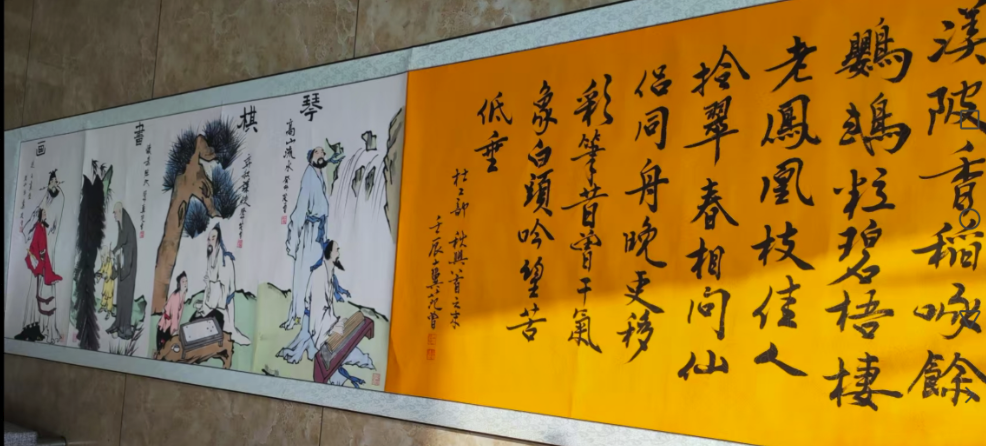 渼陂香稻啄餘
鸚鵡粒碧梧棲
老鳳凰枝佳人
拾翠春相問仙
侣同舟晚更移
彩筆昔曾干氣
象白頭吟望苦
低垂
杜工部 秋興首之
壬辰冀
琴
高山流水
棋
書
画